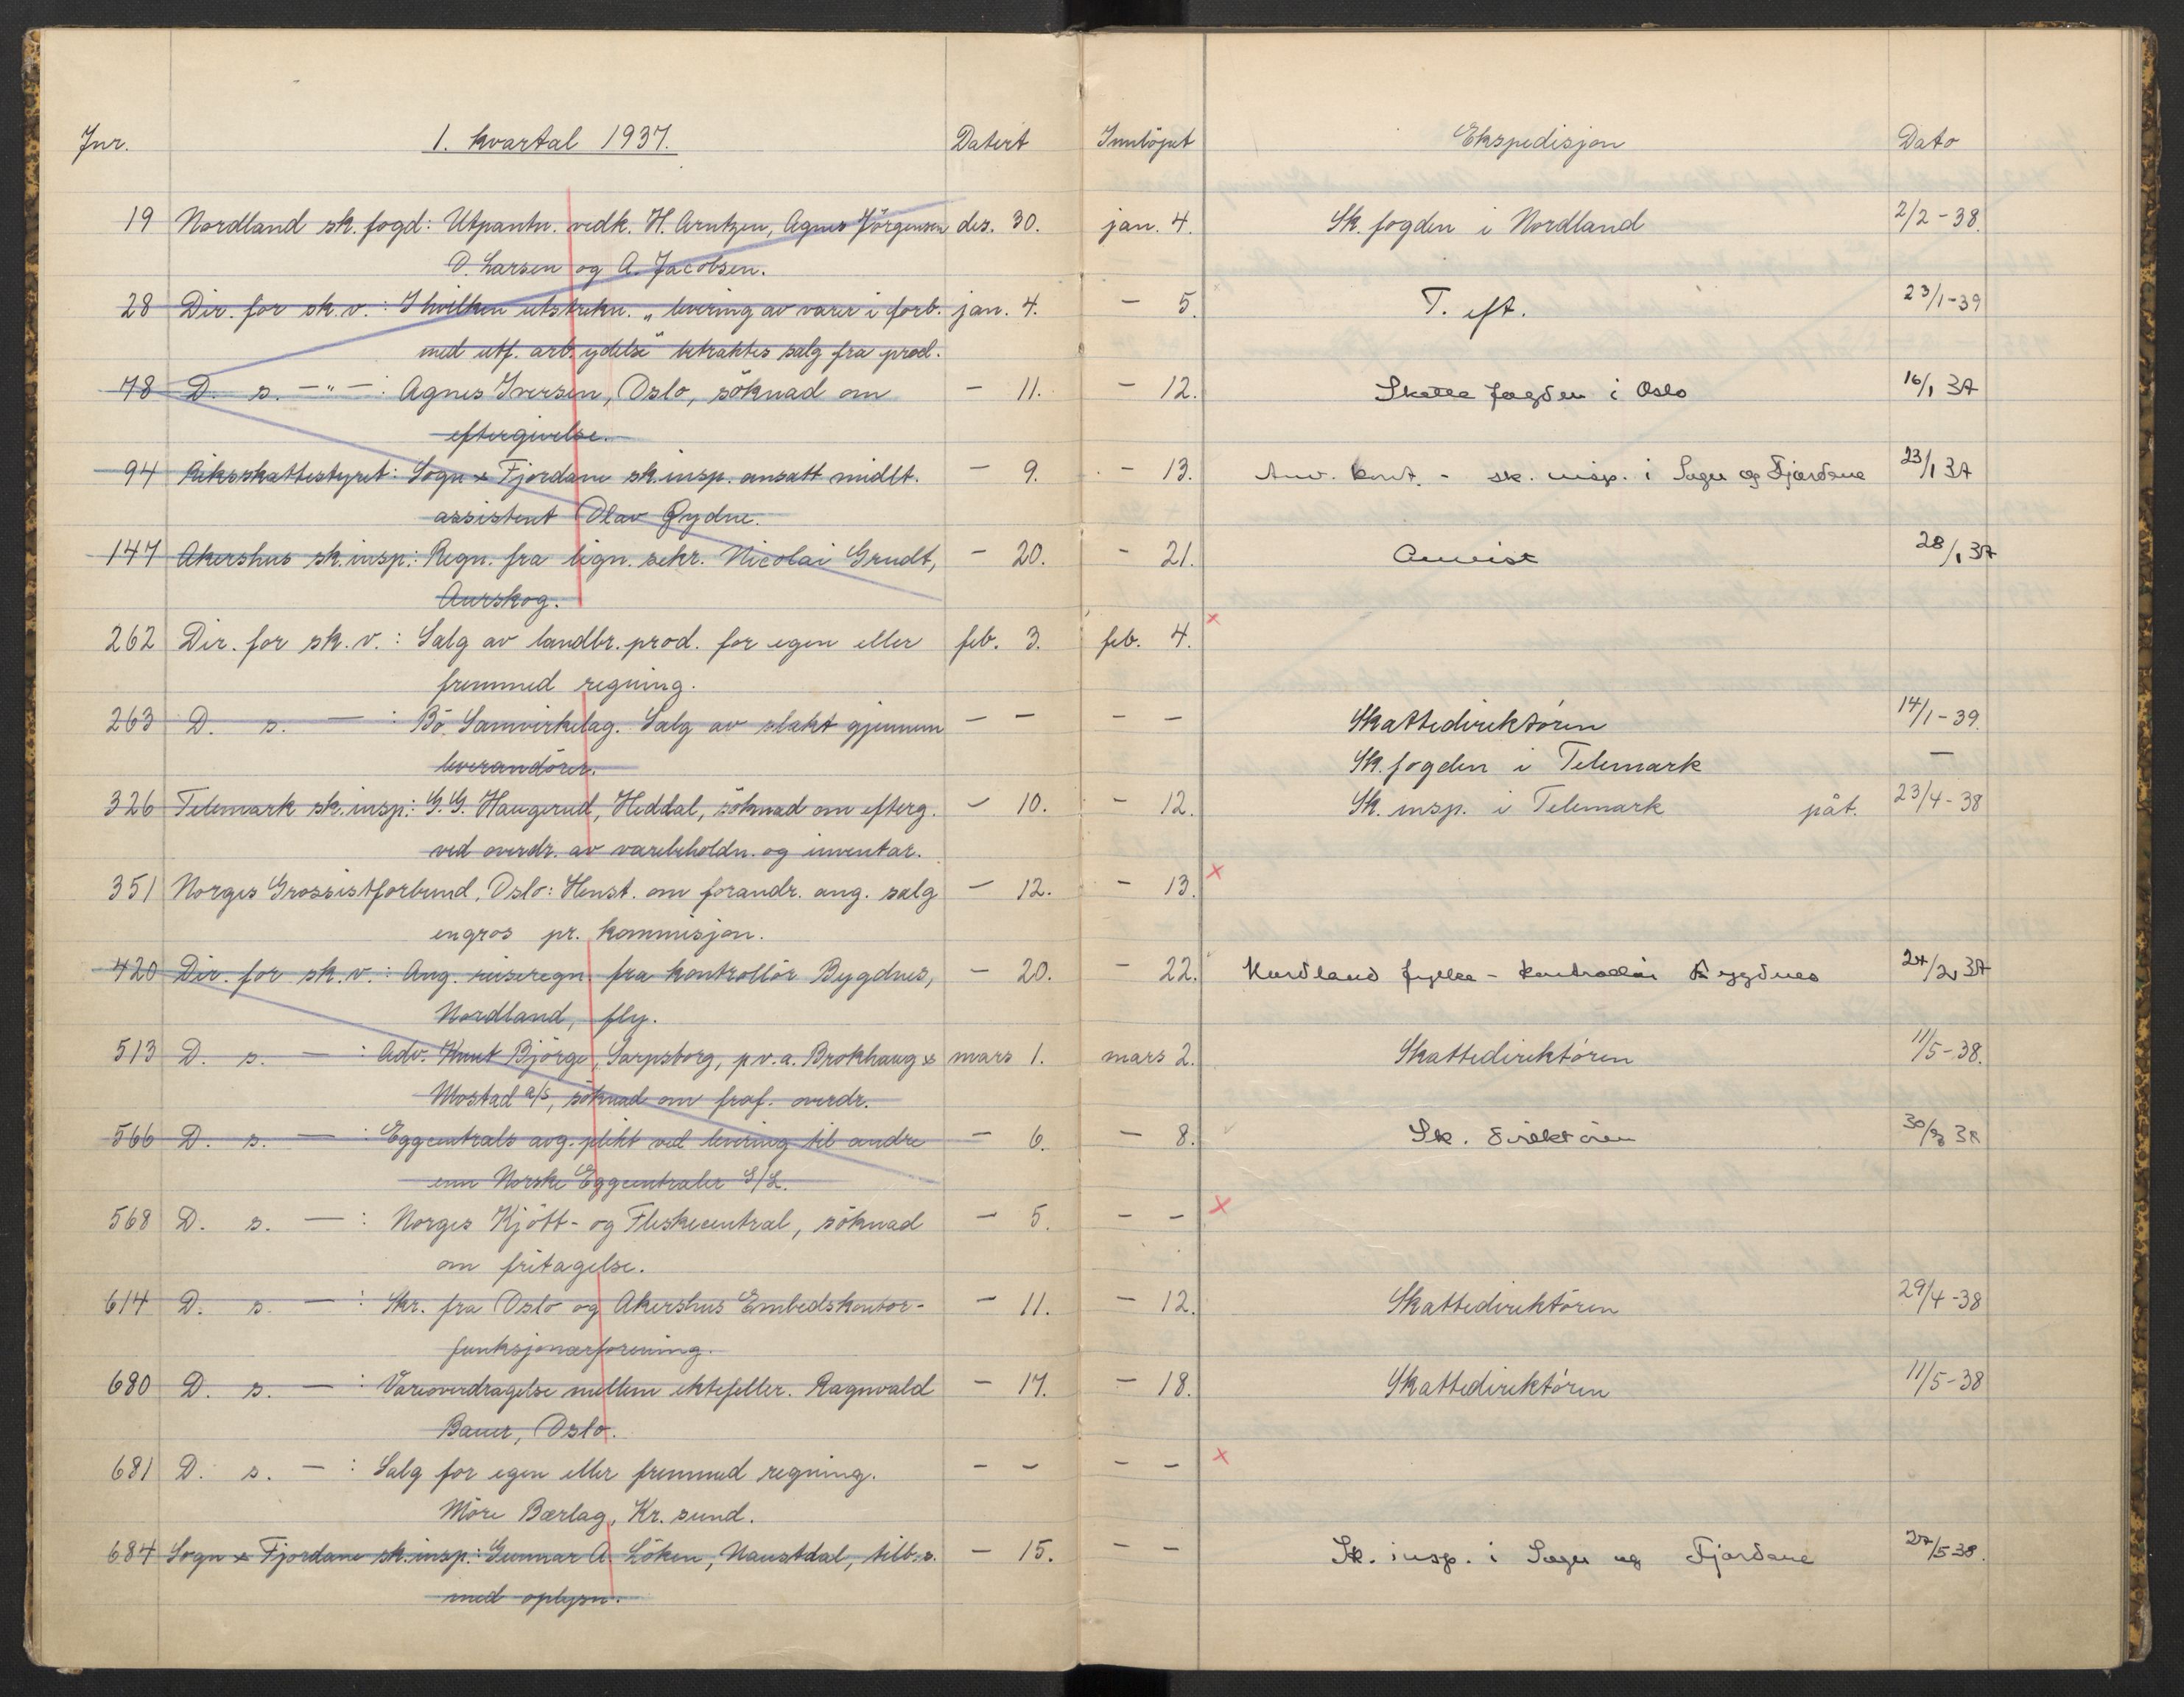 Jnr. 1. kvartal 1937. Datert Innlöpet Ekspedisjon Dato
19 Nordland sk. fogd: Utpantn. vedk. H. Arntzen, Agnes Jörgensen des. 30. jan. 4. Sk. fogden i Nordland 2/2-38.
O. Larsen og A. Jacobsen.
28 Dir. for sk. v.: I hvilken utstrekn. „levering av varer i forb. jan. 4. - 5. T. eft. 23/1-39
med utf. arb. ydelse" betraktes salg fra prod.
78 D. s. -"-: Agnes Iversen, Oslo, söknad om - 11. - 12. Skatte fogden i Oslo 16/1 37
eftergivelse.
94 Riksskattestyret: Sogn & Fjordane sk. insp. ansatt midlt. - 9. - 13. Anv. kont. - sk. insp. i Sogn og Fjordane 23/1 37
assistent Olav Qydne.
147 Akershus sk. insp.: Regn. fra lign. sekr. Nicolai Grudt, - 20. - 21. Anvist 28/1 37
Aurskog.
262 Dir. for sk. v.: Salg av landbr. prod. for egen eller feb. 3. feb. 4. x
fremmed regning.
263 D. s. -: Bö Samvirkelag. Salg av slakt gjennem - - - - Skattedirektören 14/1-39.
leverandörer. Sk. fogden i Telemark -
326 Telemark sk. insp.: G. G. Haugerud, Heddal, söknad om efterg. - 10. - 12. Sk. insp. i Telemark påt. 23/4-38
ved overdr. av varebeholdn. og inventar.
351 Norges Grossistforbund, Oslo: Henst. om forandr. ang. salg - 12. - 13. x
engros pr. kommisjon.
420 Dir. for sk. v.: Ang. reiseregn. fra kontrollör Bygdnes, - 20. - 22. Nordland fylke - kontrollör Bygdnes 24/2 37
Nordland, fly.
513 D. s. -: Adv. Knut Björge, Sarpsborg, p.v.a. Brokhaug & mars 1. mars 2. Skattedirektören 11/5-38.
Mostad a/s, söknad om fraf. overdr.
566 D. s. -: Eggcentrals avg. plikt ved levering til andre - 6. - 8. Sk. direktören 30/3 38
enn Norske Eggcentraler S/L.
568 D. s. -: Norges Kjött- og Fleskecentral, söknad - 5. - - x
om fritagelse.
614 D. s. -: Skr. fra Oslo og Akershus Embedskontor- - 11. - 12. Skattedirektören 29/4-38
funksjonærforening.
680 D. s. -: Vareoverdragelse mellem ektefeller. Ragnvald - 17. - 18. Skattedirektören 11/5-38
Bauer, Oslo.
681 D. s. -: Salg for egen eller fremmed regning. - - - - x
Möre Bærlag, Kr. sund.
684 Sogn & Fjordane sk. insp.: Gunnar A. Löken, Naustdal, tilb. s. - 15. - - Sk. insp. i Sogn og Fjordane 27/5 38.
med oplysn.